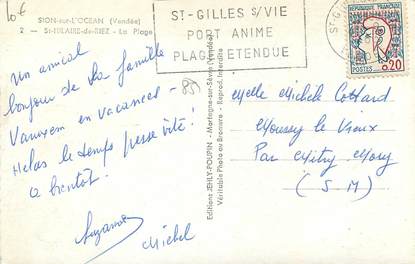 10€
SION-sur-L'OCEAN (Vendée)
2 - St-HILAIRE-de-RIEZ - La Plage
ST-GILLES S/VIE
PORT ANIME
PLAGE ETENDUE
REPUBLIQUE FRANÇAISE
POSTES
0,20
Un amical
bonjour de la famille
Vanuxem en vacances -
Helas le temps passe vite !
a bientot.
Suzanne
Michel
Editions JEHLY-POUPIN - Mortagne-sur-Sèvre (Vendée)
Véritable Photo au Bromure - Reprod. Interdite
Melle Michèle Cottard
Moussy le Vieux
Par Mitry Mory
(S M)